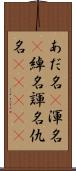 あだ名渾名
綽名諢名仇
名